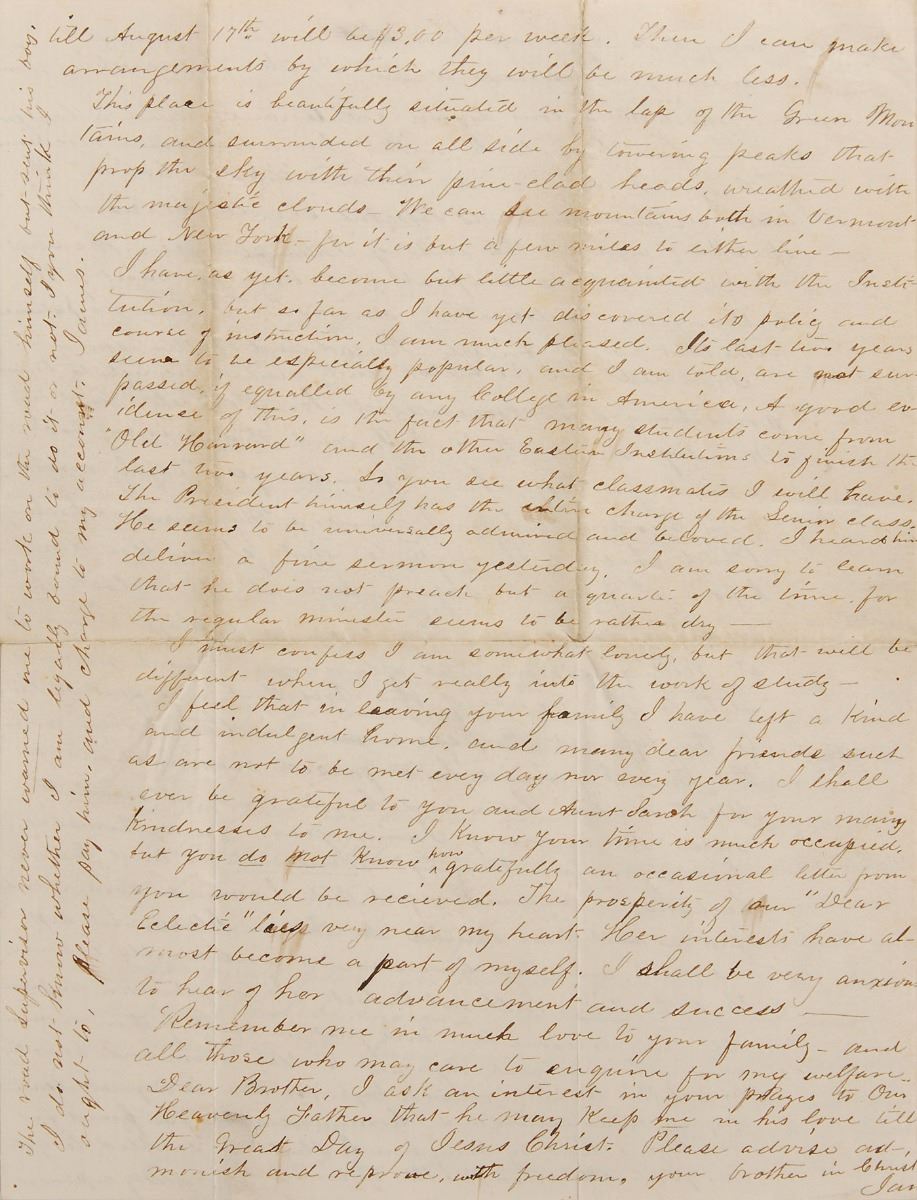 till August 17th will be $3.00 per week. Then I can make
arrangements by which they will be much less.
This place is beautifully situated in the lap of the Green Moun
tains, and surrounded on all side by towering peaks that
prop the sky with their pine-clad heads, wreathed with
the majestic clouds - We can see mountains both in Vermont
and New York - for it is but a few miles to either line -
I have, as yet, become but little acquainted with the Insti-
tution, but so far as I have yet discovered its policy and
course of instruction, I am much pleased. Its last two years
seem to be especially popular, and I am told, are not sur-
passed, if equalled by any College in America. A good ev-
idense of this, is the fact that many students come from
"Old Harvard" and the other Eastern Institutions to finish the
last two years. So you see what classmates I will have.
The President himself has the entire charge of the Senior class.
He seems to be universally admired and beloved. I heard him
deliver a fine sermon yesterday. I am sorry to learn
that he does not preach but a quarter of the time, for
the regular minister seems to be rather dry -
I must confess I am somewhat lonely, but that will be
different when I get really into the work of study -
I feel that in leaving your family I have left a kind
and indulgent home, and many dear friends such
as are not to be met every day nor every year. I shall
ever be grateful to you and Aunt Sarah for your many
kindnesses to me. I know your time is much occupied,
but you do not know how gratefully an occasional letter from
you would be recieved. The prosperity of our "Dear
Eclectic" lies very near my heart. Her interests have al-
most become a part of myself. I shall be very anxious
to hear of her advancement and success -
Remember me in much love to your family - and
all those who may care to enquire for my welfare.
Dear Brother, I ask an interest in your prayes to Our
Heavenly Father that he may keep me in his love till
the Great Day of Jesus Christ. Please advise ad-
monish and reprove, with freedom, your brother in Christ
Jam
The road supervisor never warned me to work on the road himself but sent his boy.
I do not know whether I am legally bound to do it or not. If you think I
ought to, please pay him, and charge to my account. James.